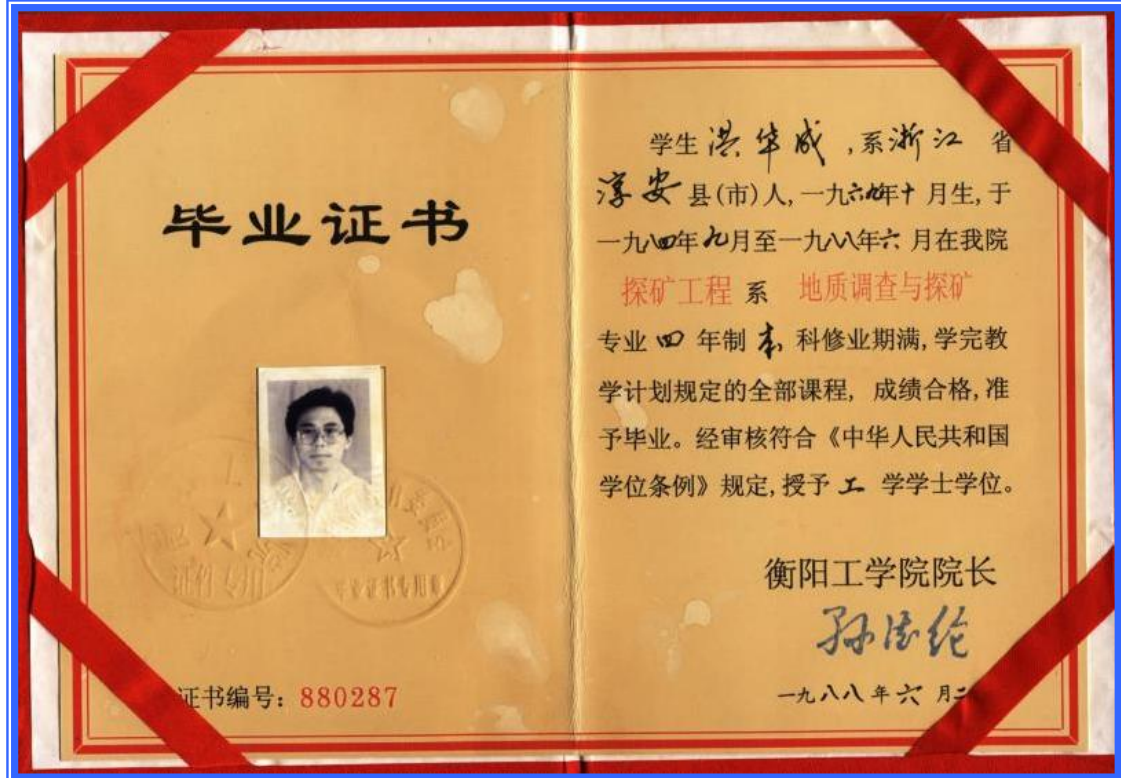 毕业证书
证件专用
毕业证书专用章
证书编号：880287
学生 洪华成 ,系 浙江 省
淳安 县(市)人,一九六九年十月生,于
一九八四年九月至一九八八年六月在我院
探矿工程 系 地质调查与探矿
专业 四 年制 本 科修业期满,学完教
学计划规定的全部课程, 成绩合格,准
予毕业。经审核符合《中华人民共和国
学位条例》规定,授予 工 学学士学位。
衡阳工学院院长
一九八八年六月二